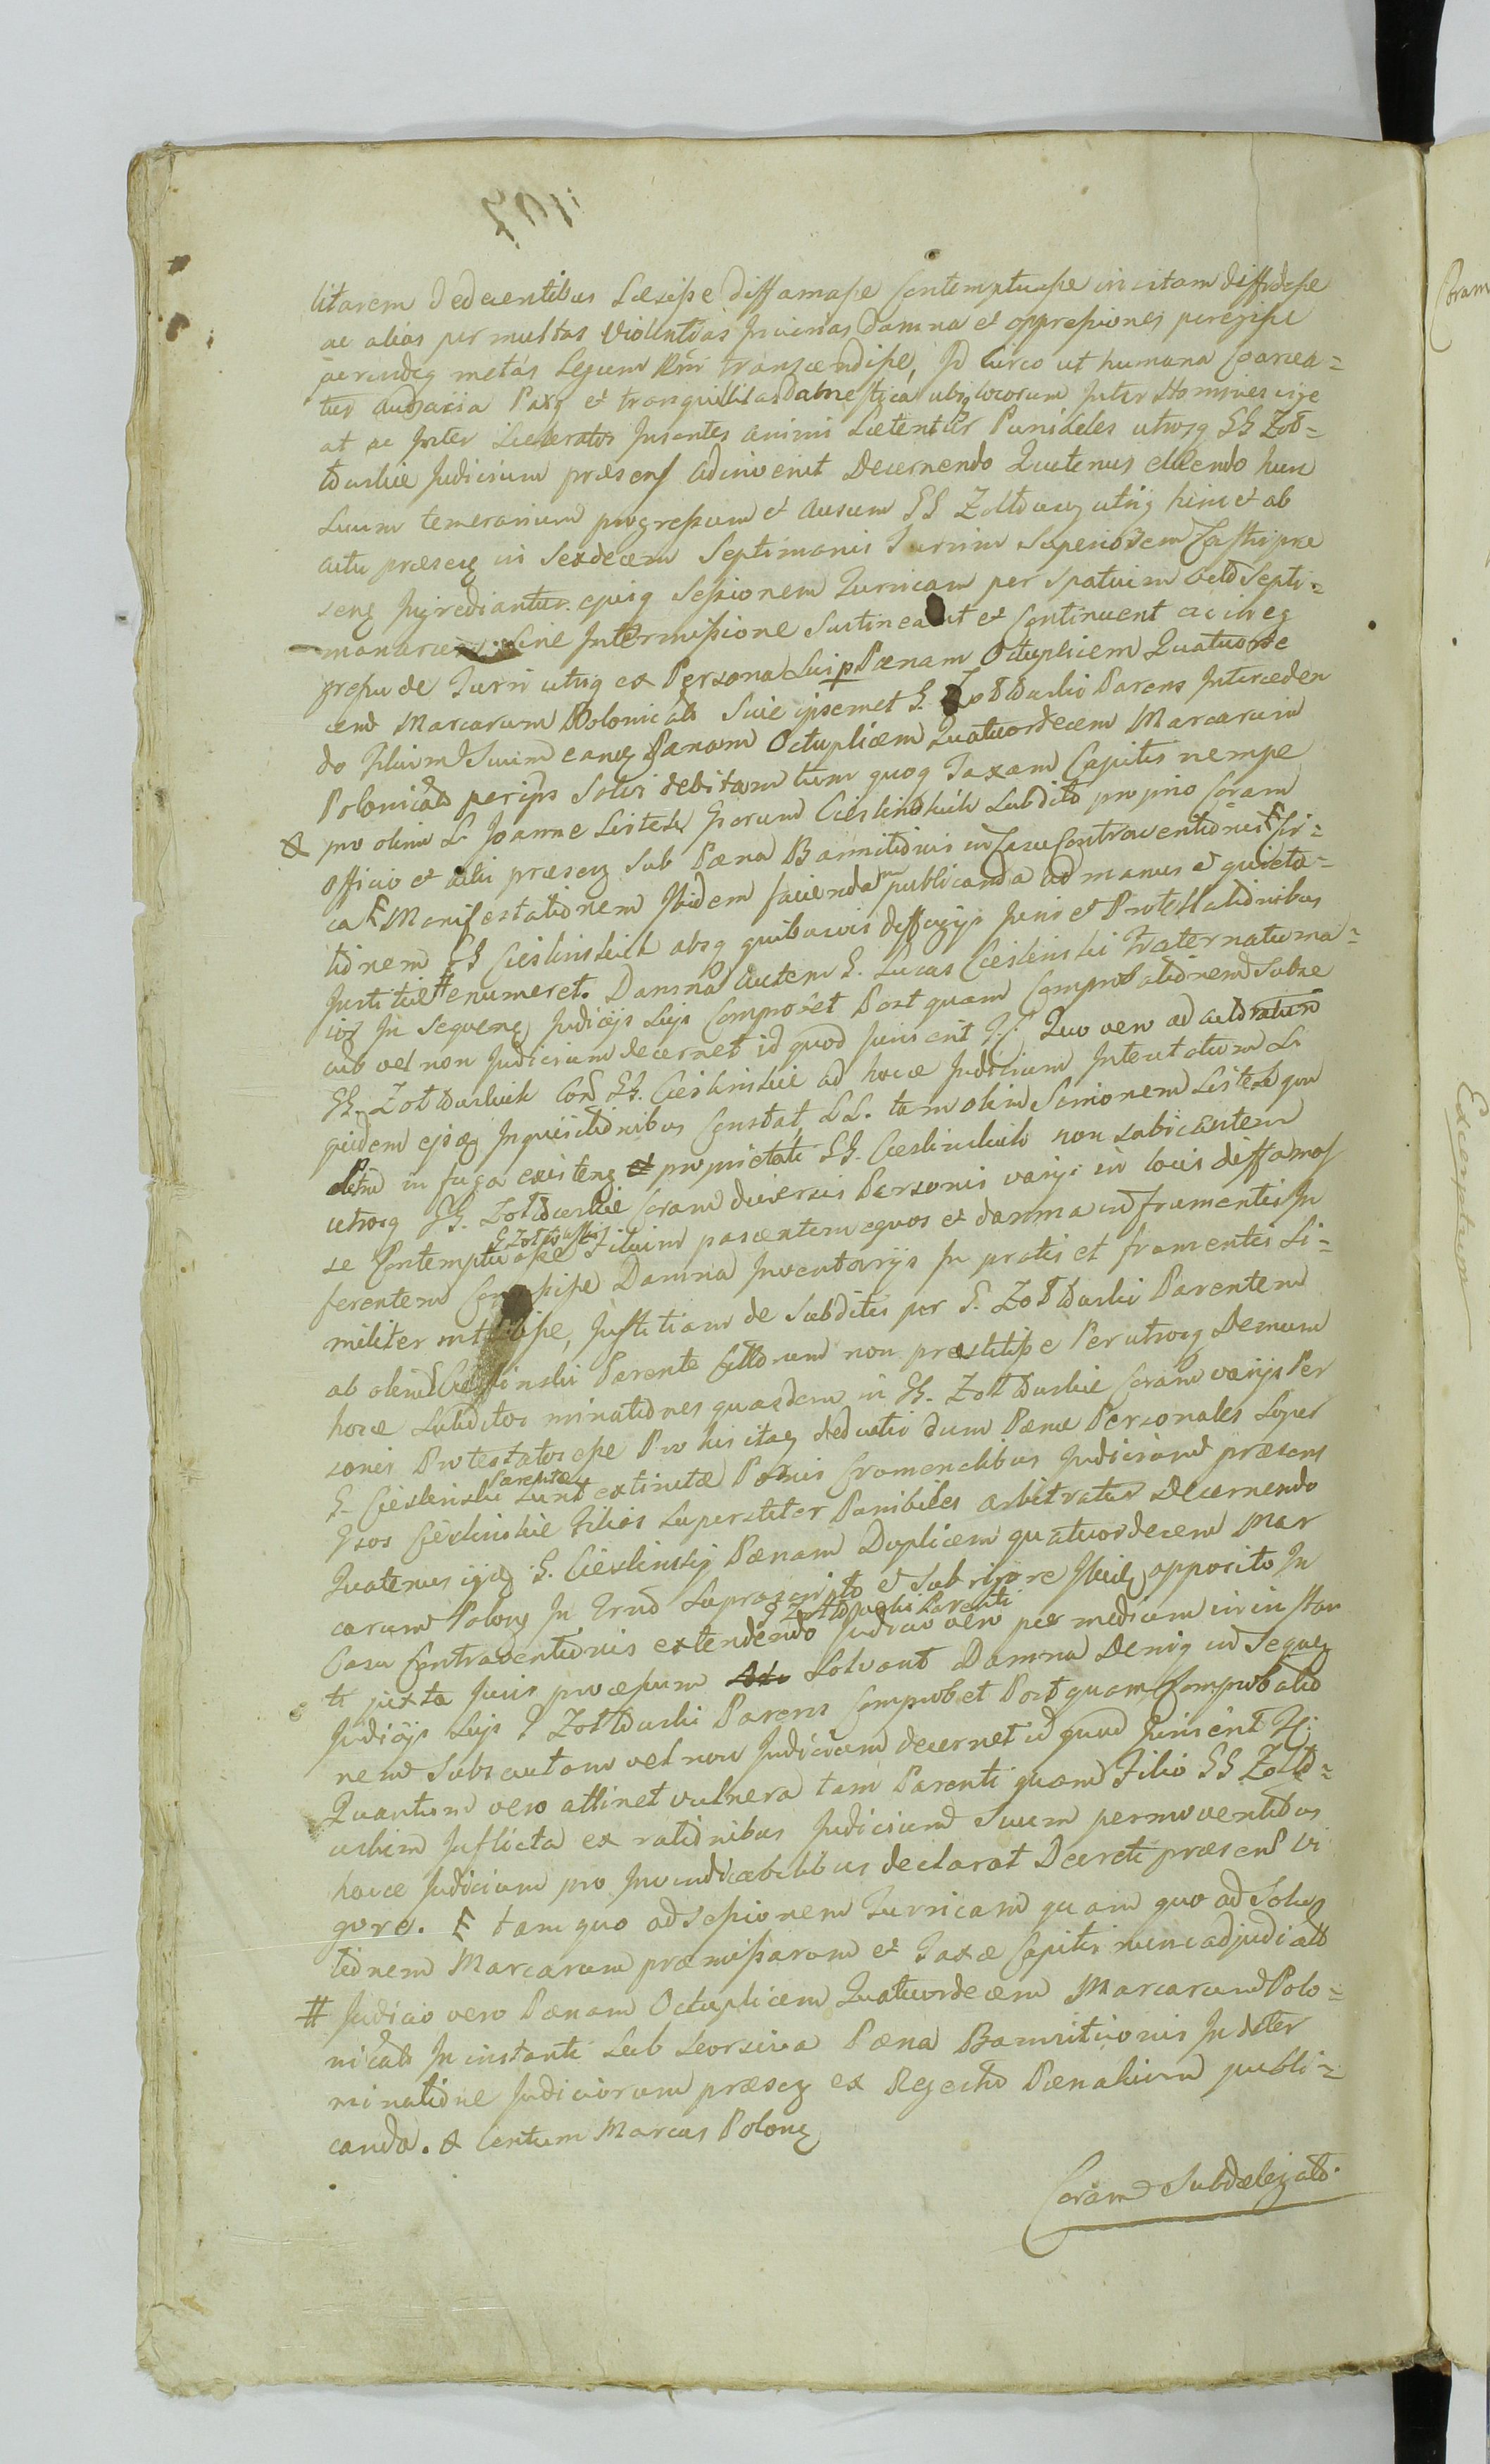 litarem dedecentibus Læsisse diffamasse Contemptuisse in vitam diffidasse
ac alias per multas Violentias Injurias Damna et oppressiones peregisse
perindeq metas Legum Rni transcendisse, Id circo ut humana Coarcea=
tur audacia Paxq et tranquillitas domestica ubiq locorum Inter Homines vige
at ac Inter Sceleratos Insontes animi Lætentur Punibiles utrosq GG Zoł=
towskie Judicium præsens adinvenit Decernendo Quatenus eluendo hun
suum temerarium progressum et ausum GG Zołtowscy utriq hinc et ab
actu præseq in Sexdecem Septimanis Turrim Superiorem Castri præ
senq Ingrediantur ejusq Sessionem Turricam per spatium octo Septi=
manarum sine Intermissione Sustineant et Continuent ac in eg
gressu de Turri utriq ex Persona Sui p Pœnam Octuplicem Quatuorde
cem Marcarum Polonicalo Sive ipsemet G. Zołtowski Parens Interceden
do Filium Suum eanq Pœnam Octuplicem Quatuordecem Marcarum
Polonicalo per ips Solvi debitam tum quoq Taxam Capitis nempe
& pro olim L. Joanne Sistek Gsorum Cieslinskich Subdito proprio Coram
Officio et actis præsenq Sub Pœna Bannitionis in Casu Contraventionis Ɛ Cir=
ca Ɛ Manifestationem Ibidem faciendam publicanda ad manus et quieta=
tionem GG Cieslinskich absq quibusvis diffugijs Juris et Protestationibus
Justitiæ # enumeret. Damna autem G. Lucas Cieslinski Fraternatuma=
ior In sequenq Judicijs Sujs Comprobet Post quam Comprobationem Subse
cuto vel non Judicium decernet id quod Juris erit J: Quo vero ad actoratum
GG. Zołtowskich Con GG. Cieslinskie ad hocce Judicium Intentatum Si
quidem ejsdq Inquisitionibus Constat, LL. tam olim Simonem Sistek qm
in fuga existenq proprietati GG. Cieslinskich non subicentem
utrosq GG. Zołtowskie Coram diversis Personis varijs in locis diffamas
se Contemptuasse G Zołtowskis Filium pascentem equos et damna in frumentis In
ferentem Damna Inventarijs In pratis et frumentis Si=
militer Justitiam de Subditis per G. Zołtowski Parentem
ab olim Cieslinski Parente Cittorum non præstitisse Per utrosq Demum
hosce Subditos minationes quasdam in GG. Zołtowskie Coram varijs Per
sonis Protestatos esse Pro his itaq deductis dum Pœnæ Personales Super
G. Cieslinski Parentem Sunt extinctæ Pœnis Cromenalibus Judicium præsens
Gsos Cieslinskie Filios Superstites Punibiles arbitratur Decernendo
Quatenus ijdq G. Cieslinscy Pœnam Duplicem quatuordecem Mar
carum Polonq In Trno Suprascripto et Sub rigore Ibidq apposito In
Casu Contraventionis extendendo G Zołtowski Parenti Judicio vero per medium in instan
ti juxta Juris processum Solvant Damna Deniq in Sequeq
Judicijs Sujs G Zołtowski Parens Comprobet Post quam Comprobatio
nem Subsecutam vel non Judicium decernet id quod Juris erit J:
Quantum vero attinet vulnera tam Parenti quam Filio GG Zołto=
wskim Inflicta ex rationibus Judicium Suum permoventibus
hocce Judicium pro Invindicabilibus declarat Decreti præsens vi
gore. Ɛ tam quo ad Sessionem Turricam quam quo ad Solu
tionem Marcarum præmissarum et Taxæ Capitis nunc adjudicato
# Judicio vero Pœnam Octuplicem Quatuordecem Marcarum Polo=
nicalo In instanti Sub Seorsiva Pœna Bannitionis In deter
minatione Judiciorum præseq ex Regestro Pœnalium publi=
canda. & Centum Marcas Polonq
Coram Subdelegato.
Coram
Excerptum